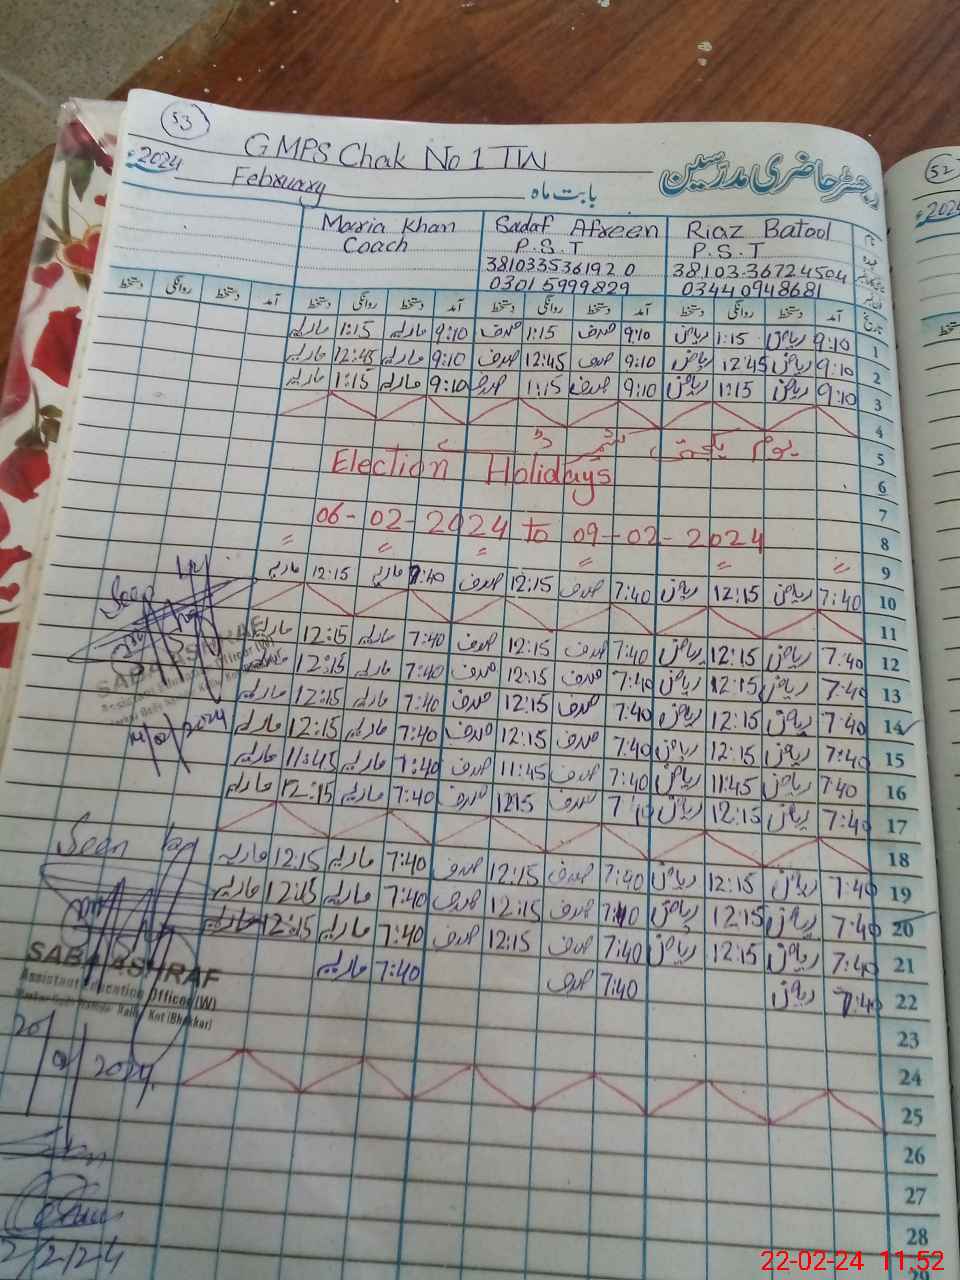 53
GMPS Chak No 1 TW
رجسٹر حاضری مدرسین
52
2024
February
بابت ماہ
2024
Maria Khan Sadaf Afreen Riaz Batool
Coach P.S.T P.S.T
381033536192 0 38103-36724504
03015999829 03440948681
دستخط روانگی دستخط آمد دستخط روانگی دستخط آمد دستخط روانگی دستخط آمد دستخط روانگی دستخط آمد تاریخ
ماریہ 1:15 ماریہ 9:10 صدف 1:15 صدف 9:10 ریاض 1:15 ریاض 9:10 1
ماریہ 12:45 ماریہ 9:10 صدف 12:45 صدف 9:10 ریاض 12:45 ریاض 9:10 2
ماریہ 1:15 ماریہ 9:10 صدف 1:15 صدف 9:10 ریاض 1:15 ریاض 9:10 3
4
یوم یکجہتی کشمیر ڈے 5
Election Holidays 6
7
06-02-2024 to 09-02-2024 8
9
ماریہ 12:15 ماریہ 7:40 صدف 12:15 صدف 7:40 ریاض 12:15 ریاض 7:40 10
11
ماریہ 12:15 ماریہ 7:40 صدف 12:15 صدف 7:40 ریاض 12:15 ریاض 7:40 12
ماریہ 12:15 ماریہ 7:40 صدف 12:15 صدف 7:40 ریاض 12:15 ریاض 7:40 13
ماریہ 12:15 ماریہ 7:40 صدف 12:15 صدف 7:40 ریاض 12:15 ریاض 7:40 14
ماریہ 12:15 ماریہ 7:40 صدف 12:15 صدف 7:40 ریاض 12:15 ریاض 7:40 15
ماریہ 11:45 ماریہ 7:40 صدف 11:45 صدف 7:40 ریاض 11:45 ریاض 7:40 16
ماریہ 12:15 ماریہ 7:40 صدف 12:15 صدف 7:40 ریاض 12:15 ریاض 7:40 17
18
ماریہ 12:15 ماریہ 7:40 صدف 12:15 صدف 7:40 ریاض 12:15 ریاض 7:40 19
ماریہ 12:15 ماریہ 7:40 صدف 12:15 صدف 7:40 ریاض 12:15 ریاض 7:40 20
ماریہ 12:15 ماریہ 7:40 صدف 12:15 صدف 7:40 ریاض 12:15 ریاض 7:40 21
ماریہ 7:40 صدف 7:40 ریاض 7:40 22
23
24
25
26
27
28
Seen by
SABA ASHRAF
Assistant Education Officer (W)
2024
Seen by
SABA ASHRAF
Assistant Education Officer (W)
Kot (Bhakkar)
20/ 2024
2/2/24
22-02-24 11:52